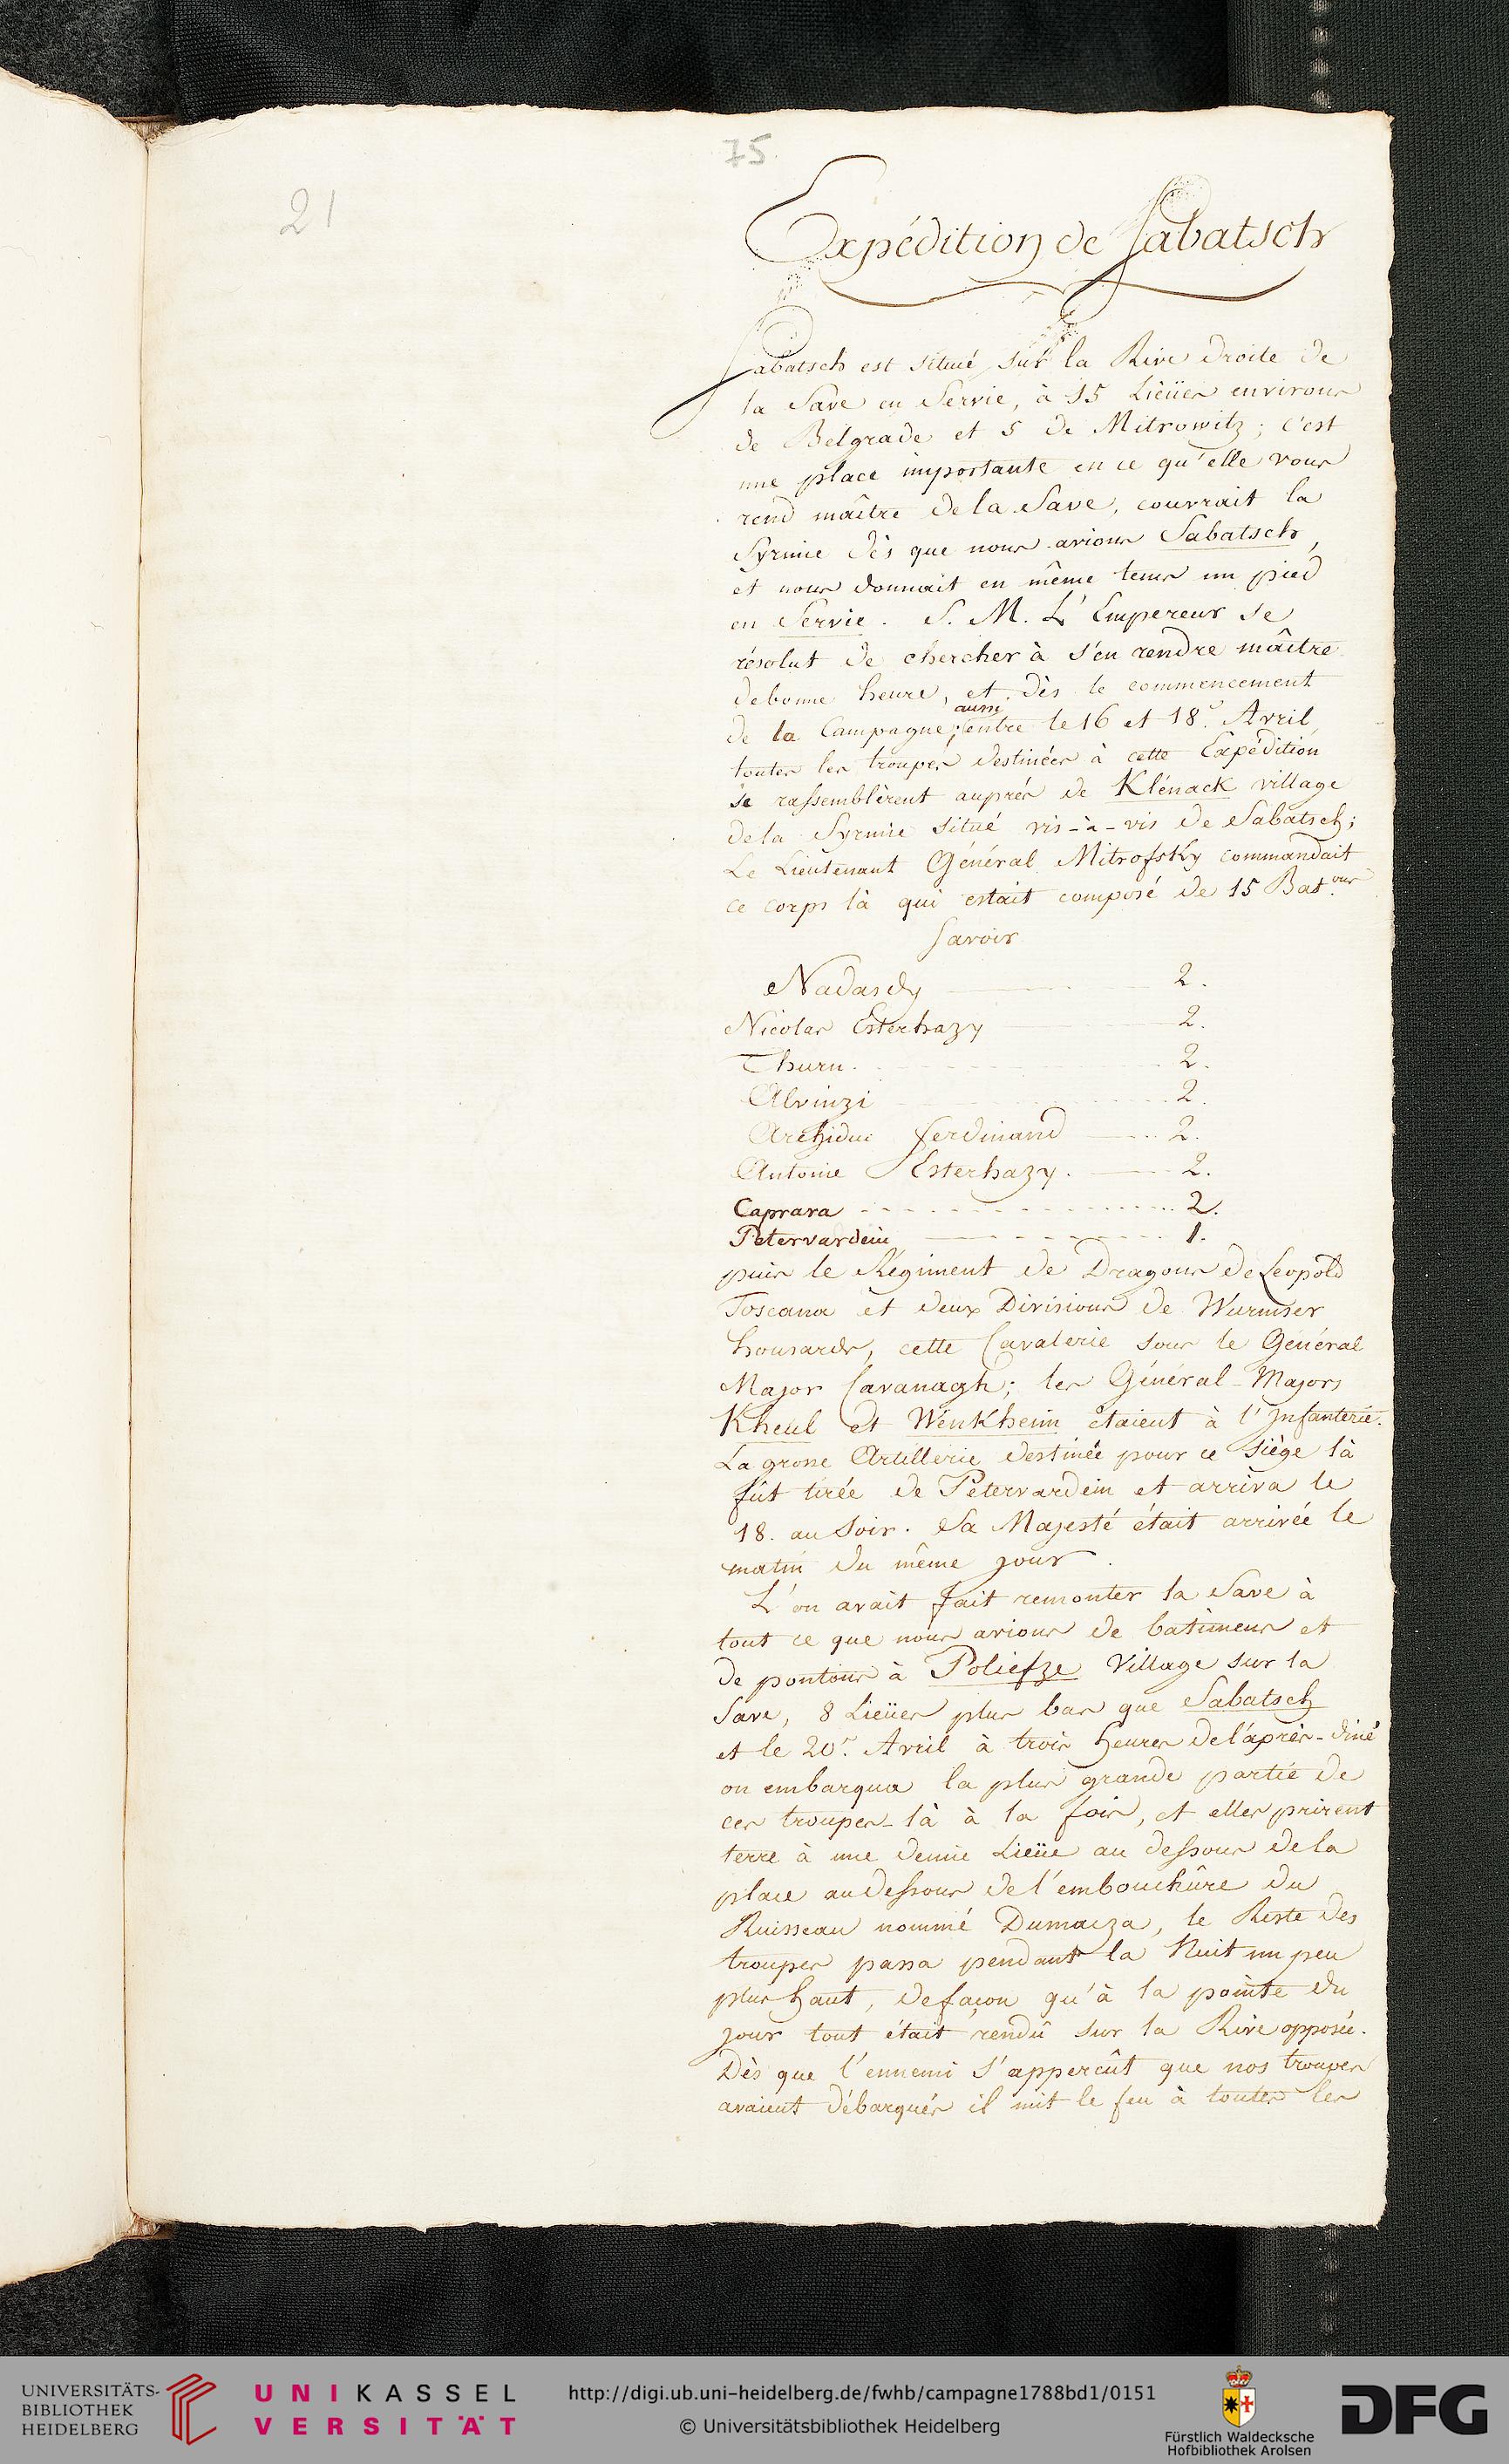 75.
21
Expédition de Sabatsch
Sabatsch est situé sur la Rive droite de
la Save en Servie, à 15 Lieües environs
de Belgrade et 5 de Mitrowitz; c'est
une place importante en ce qu'elle vous
rend maître de la Save, couvrait la
Syrmie dès que nous avions Sabatsch,
et nous donnait en même tems un pied
en Servie. S. M. L'Empereur se
résolut de chercher à s'en rendre maître
de bonne heure, et dès le commencement
de la Campagne; aussi entre le 16 et 18.e Avril
toutes les troupes destinées à cette Expédition
se rassemblèrent auprés de Klénack village
de la Syrmie situé vis-à-vis de Sabatsch;
Le Lieutenant Général Mitrofsky commandait
ce corps là qui estait composé de 15 Bat.ons
Savoir
Nadasdy 2.
Nicolas Esterhazy 2.
Thurn. 2.
Alvinzi 2.
Archiduc Ferdinand 2.
Antoine Esterhazy. 2.
Caprara 2.
Petervardein 1.
puis le Régiment de Dragons de Leopold
Toscana et deux Divisions de Wurmser
housards, cette Cavalerie sous le Général
Major Cavanagh; les Général-Majors
Kheul et Wenkheim étaient à l'Infanterie.
La grosse Artillerie destinée pour ce siège là
fût tirée de Petervardein et arriva le
18. au Soir. Sa Majesté était arrivée le
matin du même jour.
L'on avait fait remonter la Save à
tout ce que nous avions de batimens et
de pontons à Poliefze Village sur la
Save, 8 Lieües plus bas que Sabatsch
et le 20.e Avril à trois heures de l'après-diné
on embarqua la plus grande partie de
ces troupes-là à la fois, et elles prirent
terre à une demie Lieüe au dessous de la
place au dessous de l'embouchûre du
Ruisseau nommé Dumacza, le Reste des
troupes passa pendant la Nuit un peu
plus haut, de façon qu'à la pointe du
jour tout était rendû sur la Rive opposée.
Dès que l'ennemi s'apperçût que nos troupes
avaient débarqués il mit le feu à toutes les
UNIVERSITÄTS-
BIBLIOTHEK
HEIDELBERG
UNIKASSEL
VERSITÄT
http://digi.ub.uni-heidelberg.de/fwhb/campagne1788bd1/0151
© Universitätsbibliothek Heidelberg
Fürstlich Waldecksche
Hofbibliothek Arolsen
DFG